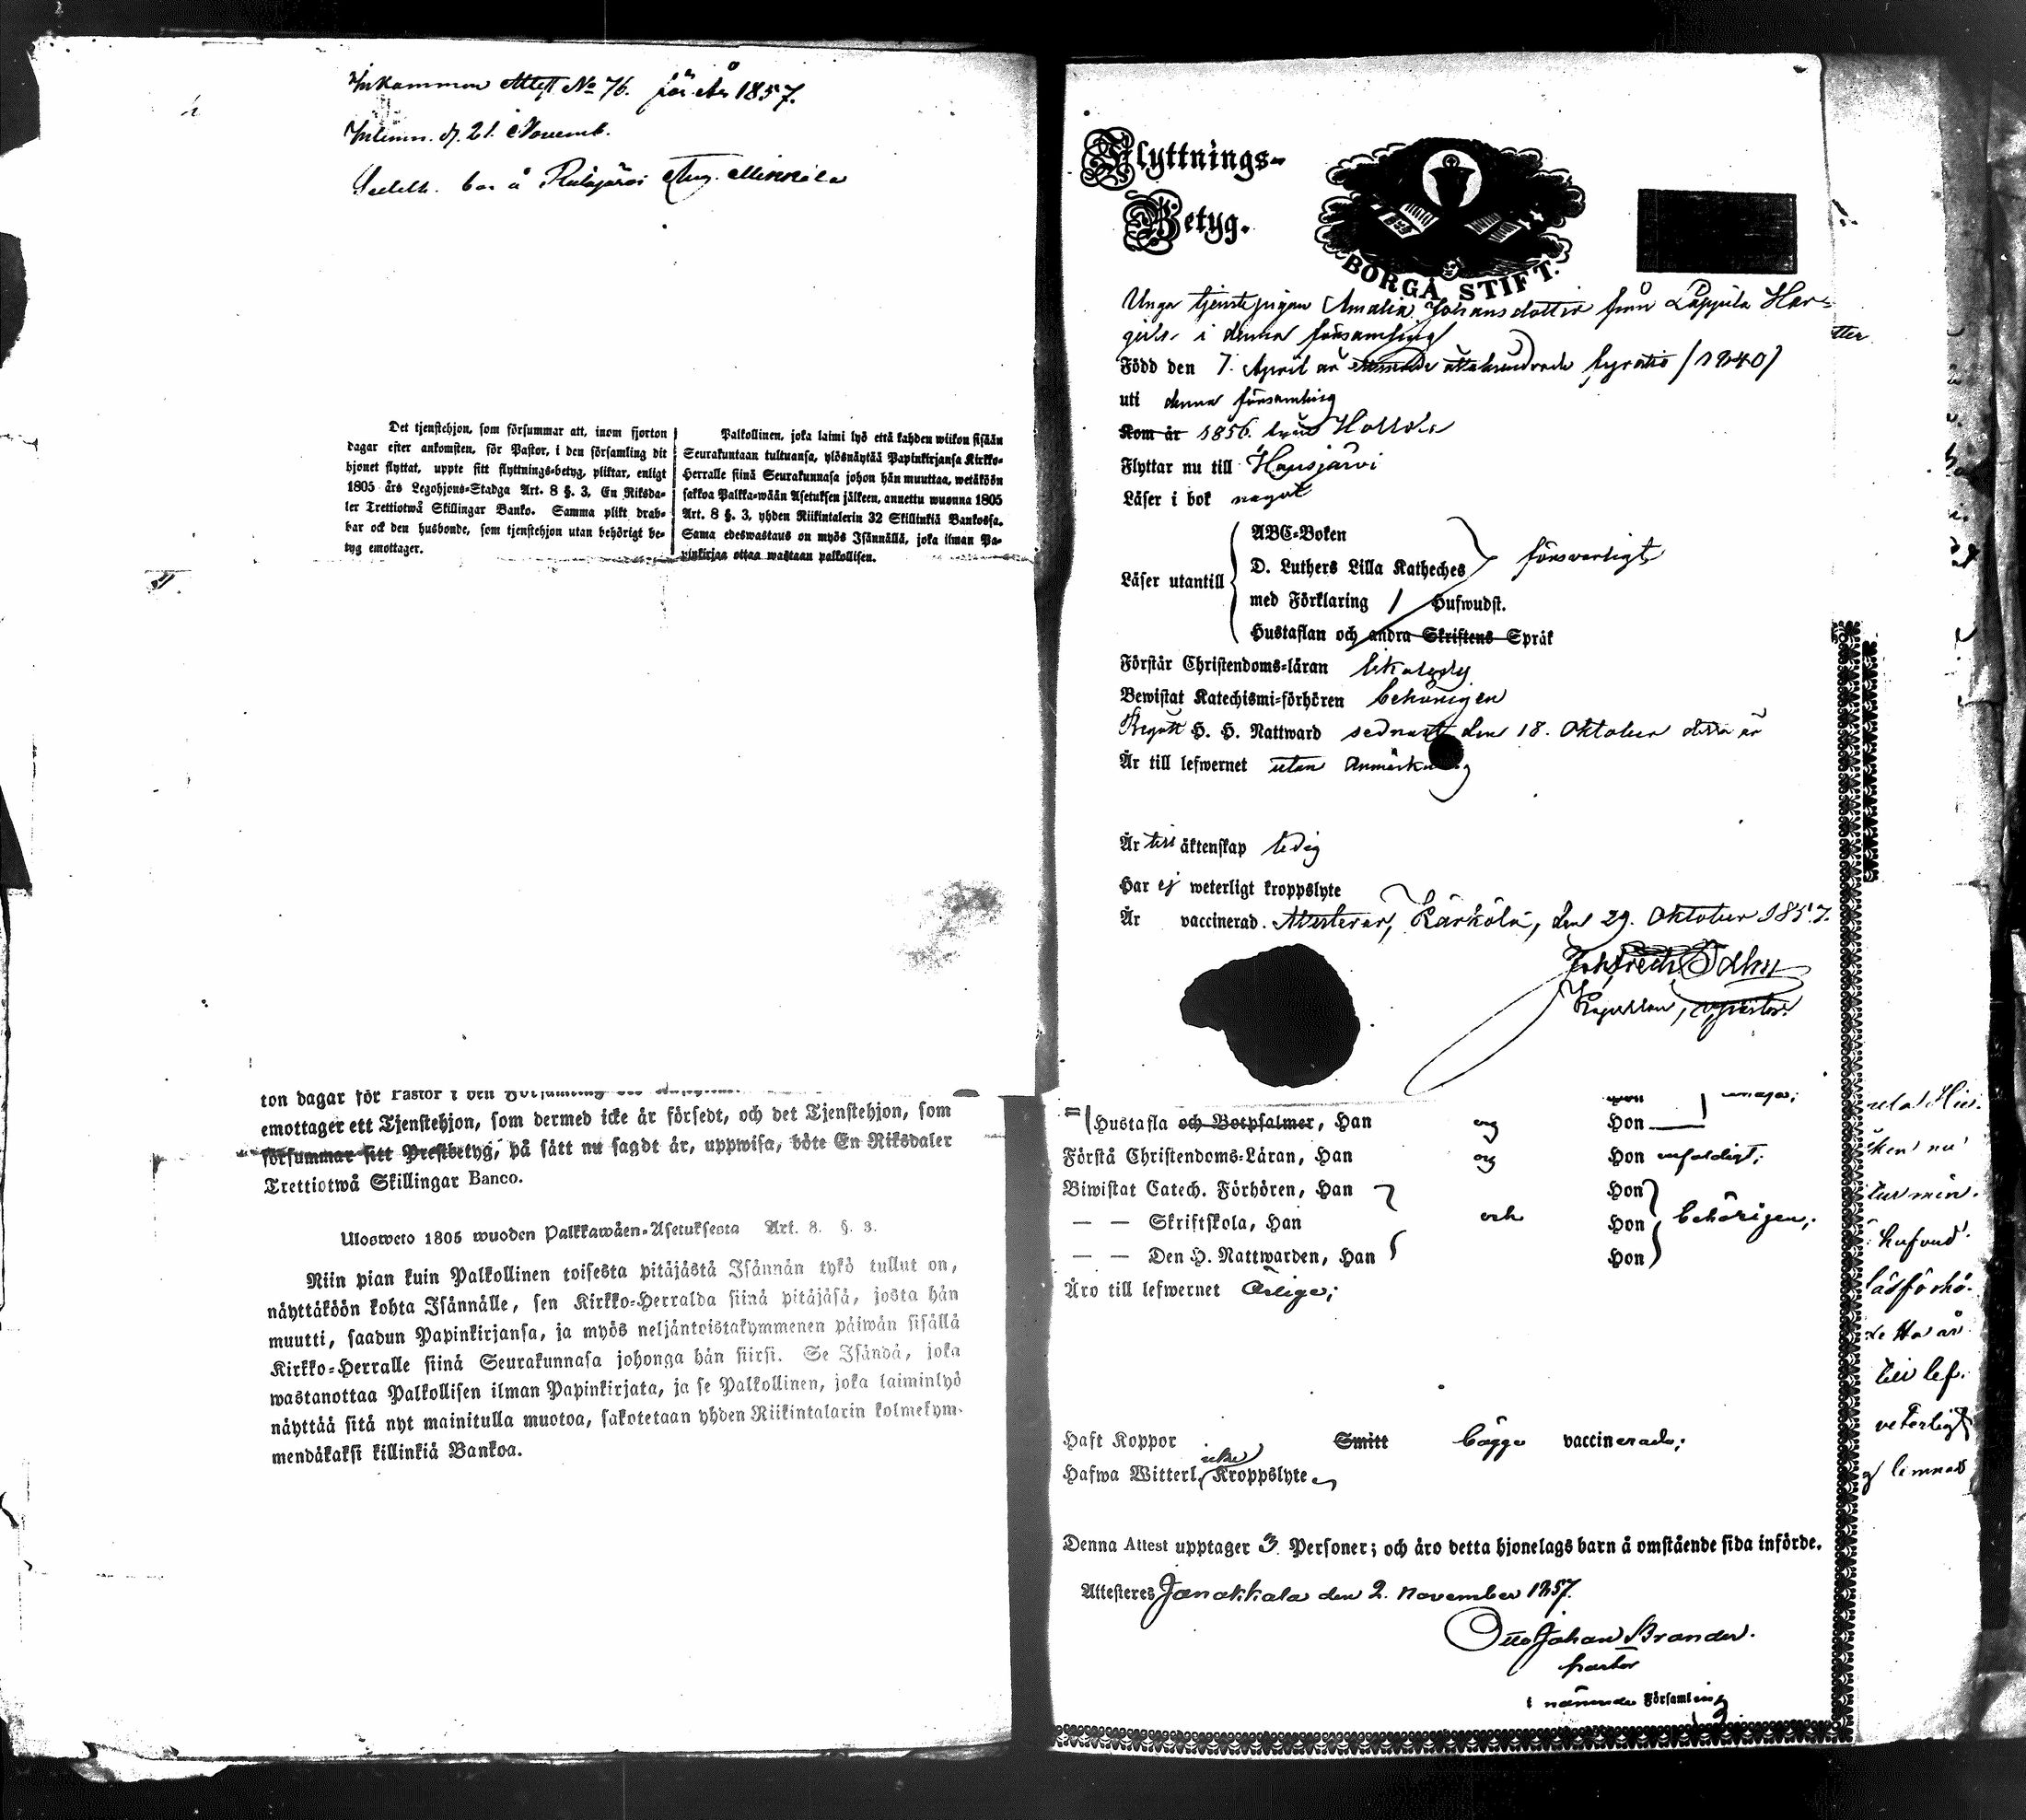 Inkommen Attest No 76. för år 1857.
Inlemn. d. 21. Novemb.
bor å Ridasjärvi Aug. Minkkila
Det tjenstehjon, som försummar att, inom fjorton
dagar efter ankomsten, för Pastor, i den församling dit
hjonet flyttat, uppte sitt flyttnings-betyg, pliktar, enligt
1805 års Legohjons-Stadga Art. 8 §. 3, En Riksda-
ler Trettiotwå Skillingar Banco. Samma plikt drab-
bar ock den husbonde, som tjenstehjon utan behörigt be-
tyg emottager.
Palkollinen, joka laimi lyö että kahden wiikon sisään
Seurakuntaan tultuansa, ylösnäytää Papinkirjansa Kirkko-
Herralle siinä Seurakunnasa johon hän muuttaa, wetäköön
sakkoa Palkka-wään Asetuksen jälkeen, annettu wuonna 1805
Art. 8 §. 3, yhden Riikintalerin 32 Skillinkiä Bankossa.
Sama edeswastaus on myös Isännällä, joka ilman Pa-
pinkirjaa ottaa wastaan palkollisen.
ton dagar för Pastor i den
emottager ett Tjenstehjon, som dermed icke är försedt, och det Tjenstehjon, som
försummar sitt Prestbetyg, på sätt nu sagdt är, uppwisa, böte En Riksdaler
Trettiotwå Skillingar Banco.
Ulosweto 1805 wuoden Palkkawäen-Asetuksesta Art. 8. §. 3.
Niin pian kuin Palkollinen toisesta pitäjästä Isännän tykö tullut on,
näyttäköön kohta Isännälle, sen Kirkko-Herralda siinä pitäjäsä, josta hän
muutti, saadun Papinkirjansa, ja myös neljäntoistakymmenen päiwän sisällä
Kirkko-Herralle siinä Seurakunnasa johonga hän siirsi. Se Isändä, joka
wastanottaa Palkollisen ilman Papinkirjata, ja se Palkollinen, joka laiminlyö
näyttää sitä nyt mainitulla muotoa, sakotetaan yhden Riikintalarin kolmekym-
mendäkaksi killinkiä Bankoa.
Flyttnings-
Betyg.
BORGÅ STIFT.
Unga tjenstepigan Amalia Johansdotter från Lappila Har-
gils i denna församling
Född den 7. April år ettusende åttahundrade fyratio (1840)
uti denna församling
Kom år 1856. från Hollola
Flyttar nu till Hausjärvi
Läser i bok något
Läser utantill
ABC-Boken
D. Luthers Lilla Katheches
med Förklaring / Hufwudst.
Hustaflan och andra Skriftens Språk
försvarligt
Förstår Christendoms-läran likaledes
Bewistat Katechismi-förhören behörigen
Begått H. H. Nattward sednast den 18. Oktober detta år
Är till lefwernet utan anmärkning
Är till äktenskap ledig
Har ej weterligt kroppslyte
Är vaccinerad. Attesterar, Kärkölä, den 29. Oktober 1857.
Kapellan, v. pastor.
Hustafla och Botpsalmer, Han og Hon
Förstå Christendoms-Läran, Han og Hon enfaldigt;
Biwistat Catech. Förhören, Han Hon
— — Skriftskola, Han och Hon behörigen;
— — Den H. Nattwarden, Han Hon
Äro till lefwernet ärlige;
Haft Koppor Smitt bägge vaccinerade;
Hafwa Witterl. icke Kroppslyte
Denna Attest upptager 3 Personer; och äro detta hjonelags barn å omstående sida införde.
Attesteres Janakkala den 2. November 1857.
Otto Johan Brander.
pastor
i nämnde Församling